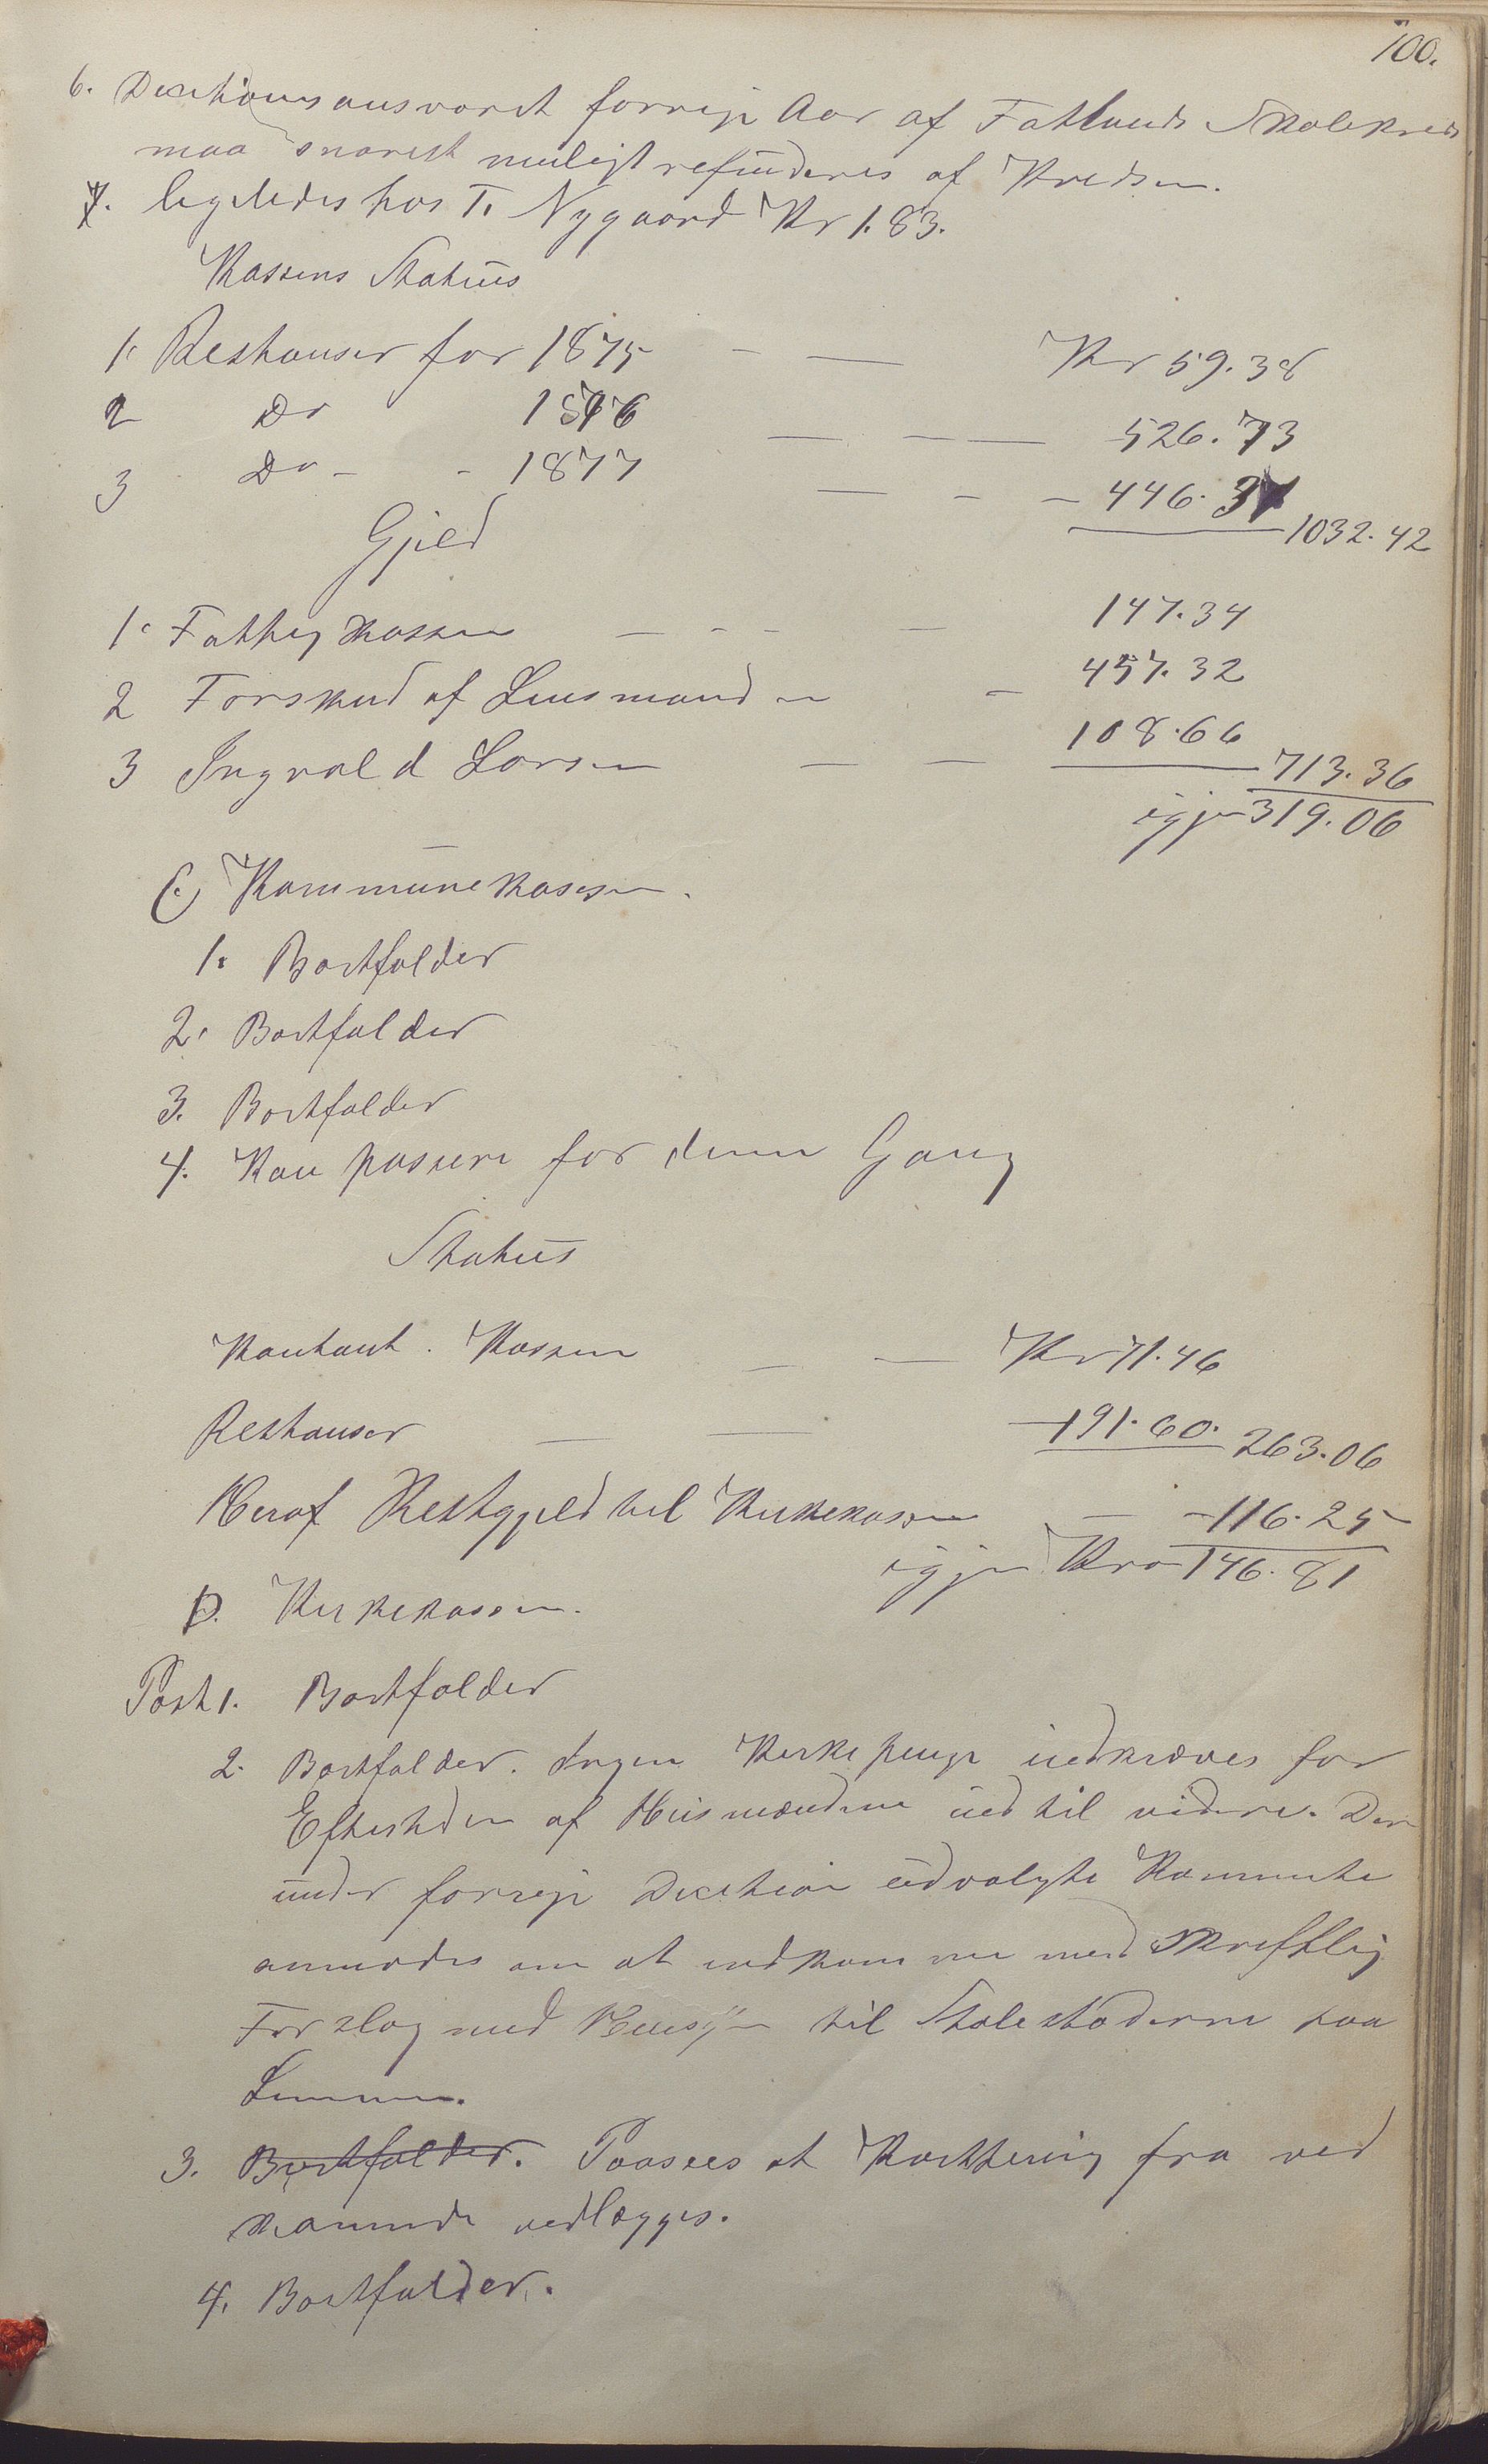 100.
6. Decisionsansvaret forrige Aar af Fatlands Skolekreds
maa snarest muligt refunderes af Kredsen.
7. ligeledes hos T. Nygaard Kr 1.83.
Kassens Status
1. Restanser for 1875 - — Kr 59.38
2 Do 1876 — — — 526.73
3 Do - - 1877 — - - 446.31
1032.42
Gjeld
1. Fattigkassen — - - - — 147.34
2 Forskud af Lensmanden - 457.32
3 Ingvald Larsen — — 108.66
713.36
igjen 319.06
C) Kommunekassen.
1. Bortfalder
2. Bortfalder
3. Bortfalder
4. Kan passere for denne Gang
Status
Kontant. Kassen — — Kr 71.46
Restanser — — — 191.60. 263.06
Heraf Restgjeld til Kirkekassen — - 116.25
igjen Kro 146.81
D. Kirkekassen.
Post 1. Bortfalder
2. Bortfalder. Ingen Kirkepenge indkræves for
Eftertiden af Husmændene indtil videre. Den
under forrige Decision udvalgte Kommite
anmodes om at indkomme med skriftlig
Forslag med Hensyn til Stolestaderne paa
3. Bortfalder. Paasees at Kvittering fra ved
kommende vedlægges.
4. Bortfalder.